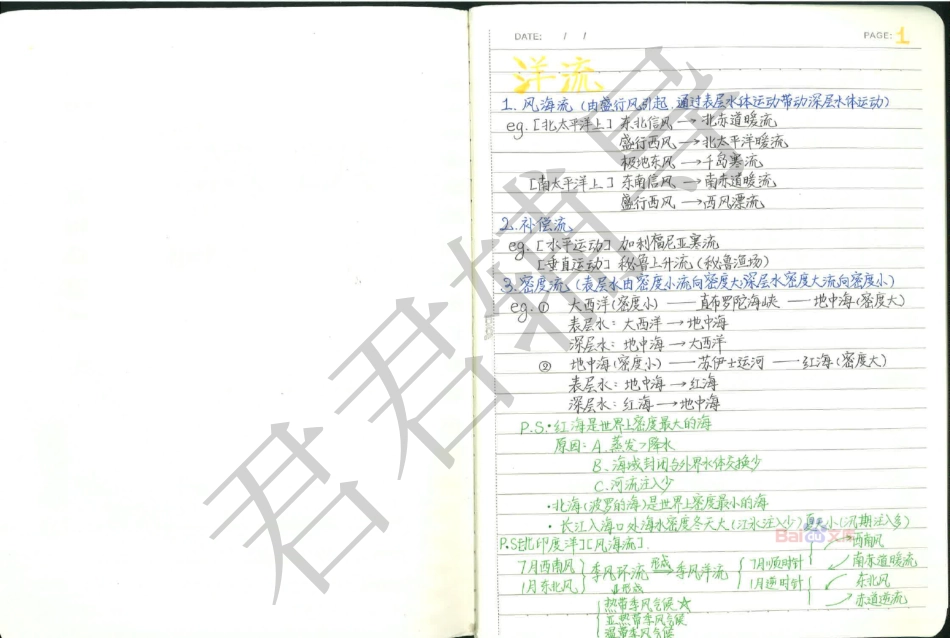 DATE: / / PAGE: 1
洋流
1. 风海流 (由盛行风引起,通过表层水体运动带动深层水体运动)
eg. [北太平洋上] 东北信风 → 北赤道暖流
盛行西风 → 北太平洋暖流
极地东风 → 千岛寒流
[南太平洋上] 东南信风 → 南赤道暖流
盛行西风 → 西风漂流
2. 补偿流
eg. [水平运动] 加利福尼亚寒流
[垂直运动] 秘鲁上升流 (秘鲁渔场)
3. 密度流 (表层水由密度小流向密度大;深层水密度大流向密度小)
eg. ① 大西洋(密度小) —— 直布罗陀海峡 —— 地中海(密度大)
表层水: 大西洋 → 地中海
深层水: 地中海 → 大西洋
② 地中海(密度小) —— 苏伊士运河 —— 红海(密度大)
表层水: 地中海 → 红海
深层水: 红海 → 地中海
P.S.·红海是世界上密度最大的海
原因: A. 蒸发>降水
B. 海域封闭与外界水体交换少
C. 河流注入少
·北海(波罗的海)是世界上密度最小的海
·长江入海口处海水密度冬天大(江水注入少)夏天小(汛期注入多)
Baidu文库
P.S[北印度洋][风海流]
7月西南风 1月东北风 } 季风环流 形成→ 季风洋流 { 7月顺时针 { 西南风 南赤道暖流
1月逆时针 { 东北风 赤道逆流
↓形成
{ 热带季风气候☆
亚热带季风气候
温带季风气候
君君辅导